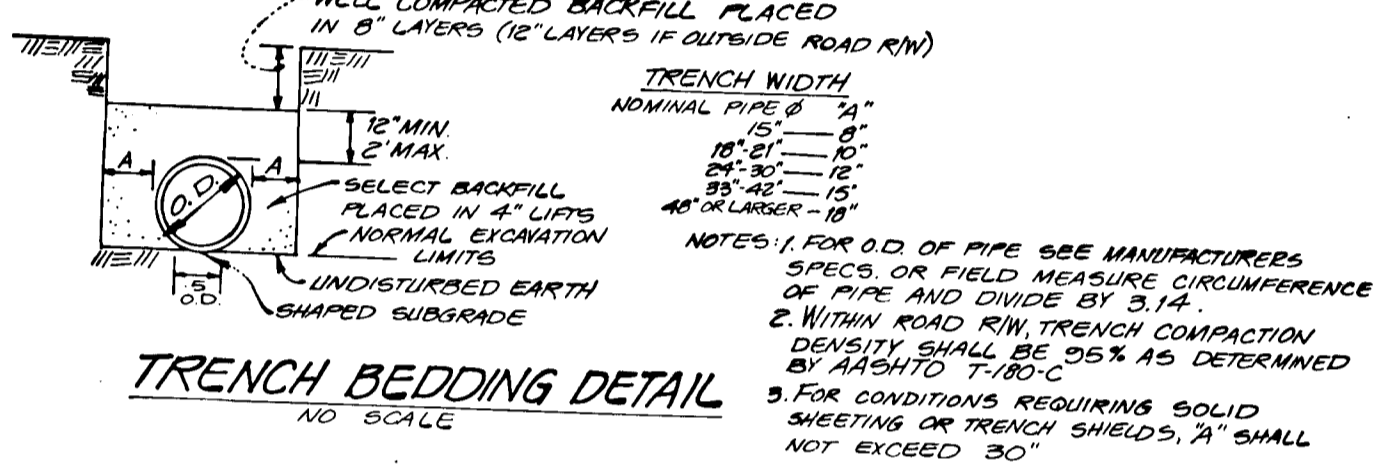 WELL COMPACTED BACKFILL PLACED
IN 8" LAYERS (12" LAYERS IF OUTSIDE ROAD R/W)
12" MIN.
2' MAX.
A
A
O.D.
SELECT BACKFILL
PLACED IN 4" LIFTS
NORMAL EXCAVATION
LIMITS
UNDISTURBED EARTH
.5
O.D.
SHAPED SUBGRADE
TRENCH BEDDING DETAIL
NO SCALE
TRENCH WIDTH
NOMINAL PIPE Ø "A"
15" — 8"
18"-21" — 10"
24"-30" — 12"
33"-42" — 15"
48" OR LARGER - 18"
NOTES: 1. FOR O.D. OF PIPE SEE MANUFACTURERS
SPECS. OR FIELD MEASURE CIRCUMFERENCE
OF PIPE AND DIVIDE BY 3.14.
2. WITHIN ROAD R/W, TRENCH COMPACTION
DENSITY SHALL BE 95% AS DETERMINED
BY AASHTO T-180-C
3. FOR CONDITIONS REQUIRING SOLID
SHEETING OR TRENCH SHIELDS, "A" SHALL
NOT EXCEED 30"